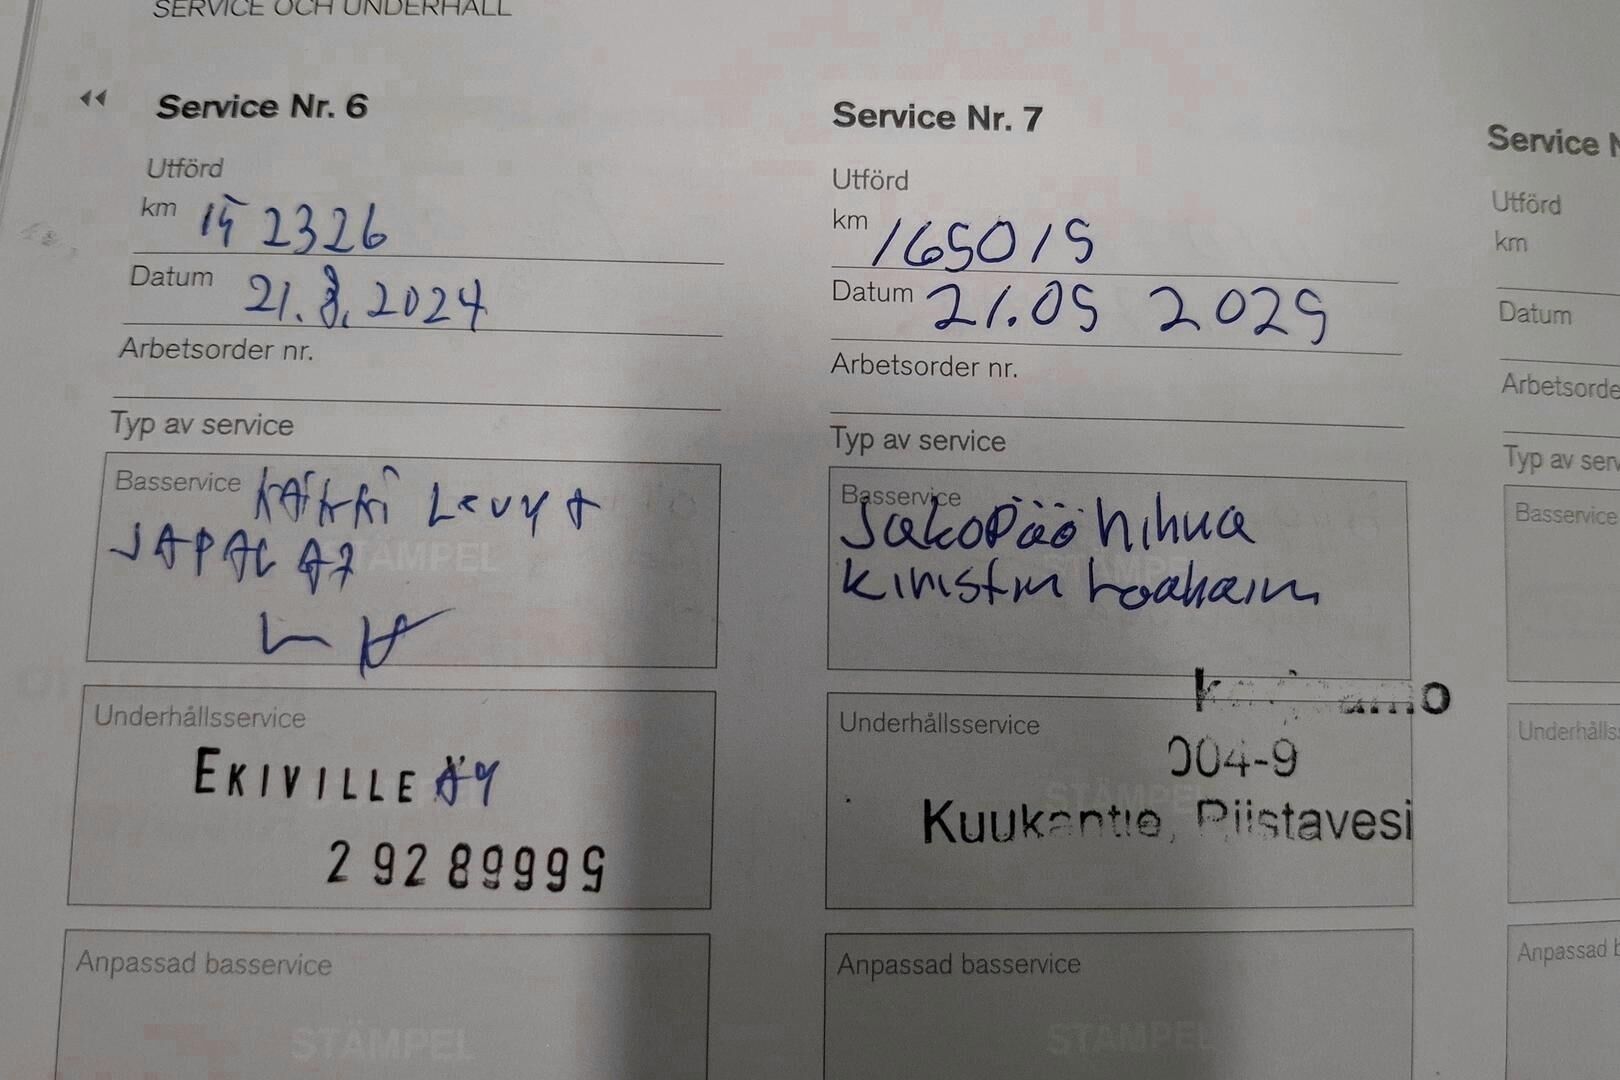 SERVICE OCH UNDERHÅLL
Service Nr. 6
Utförd
km 152326
Datum 21.8.2024
Arbetsorder nr.
Typ av service
Basservice KAIKKI Levyt
JA PALAT
STÄMPEL
Underhållsservice
EKIVILLE AY
29289995
Anpassad basservice
STÄMPEL
Service Nr. 7
Utförd
km 165015
Datum 21.05 2025
Arbetsorder nr.
Typ av service
Basservice
Jakopää hihna
kiristin
STÄMPEL
Underhållsservice
004-9
STÄMPEL
Kuukantie, Riistavesi
Anpassad basservice
STÄMPEL
Service N
Utförd
km
Datum
Arbetsorde
Typ av serv
Basservice
Underhålls
Anpassad b